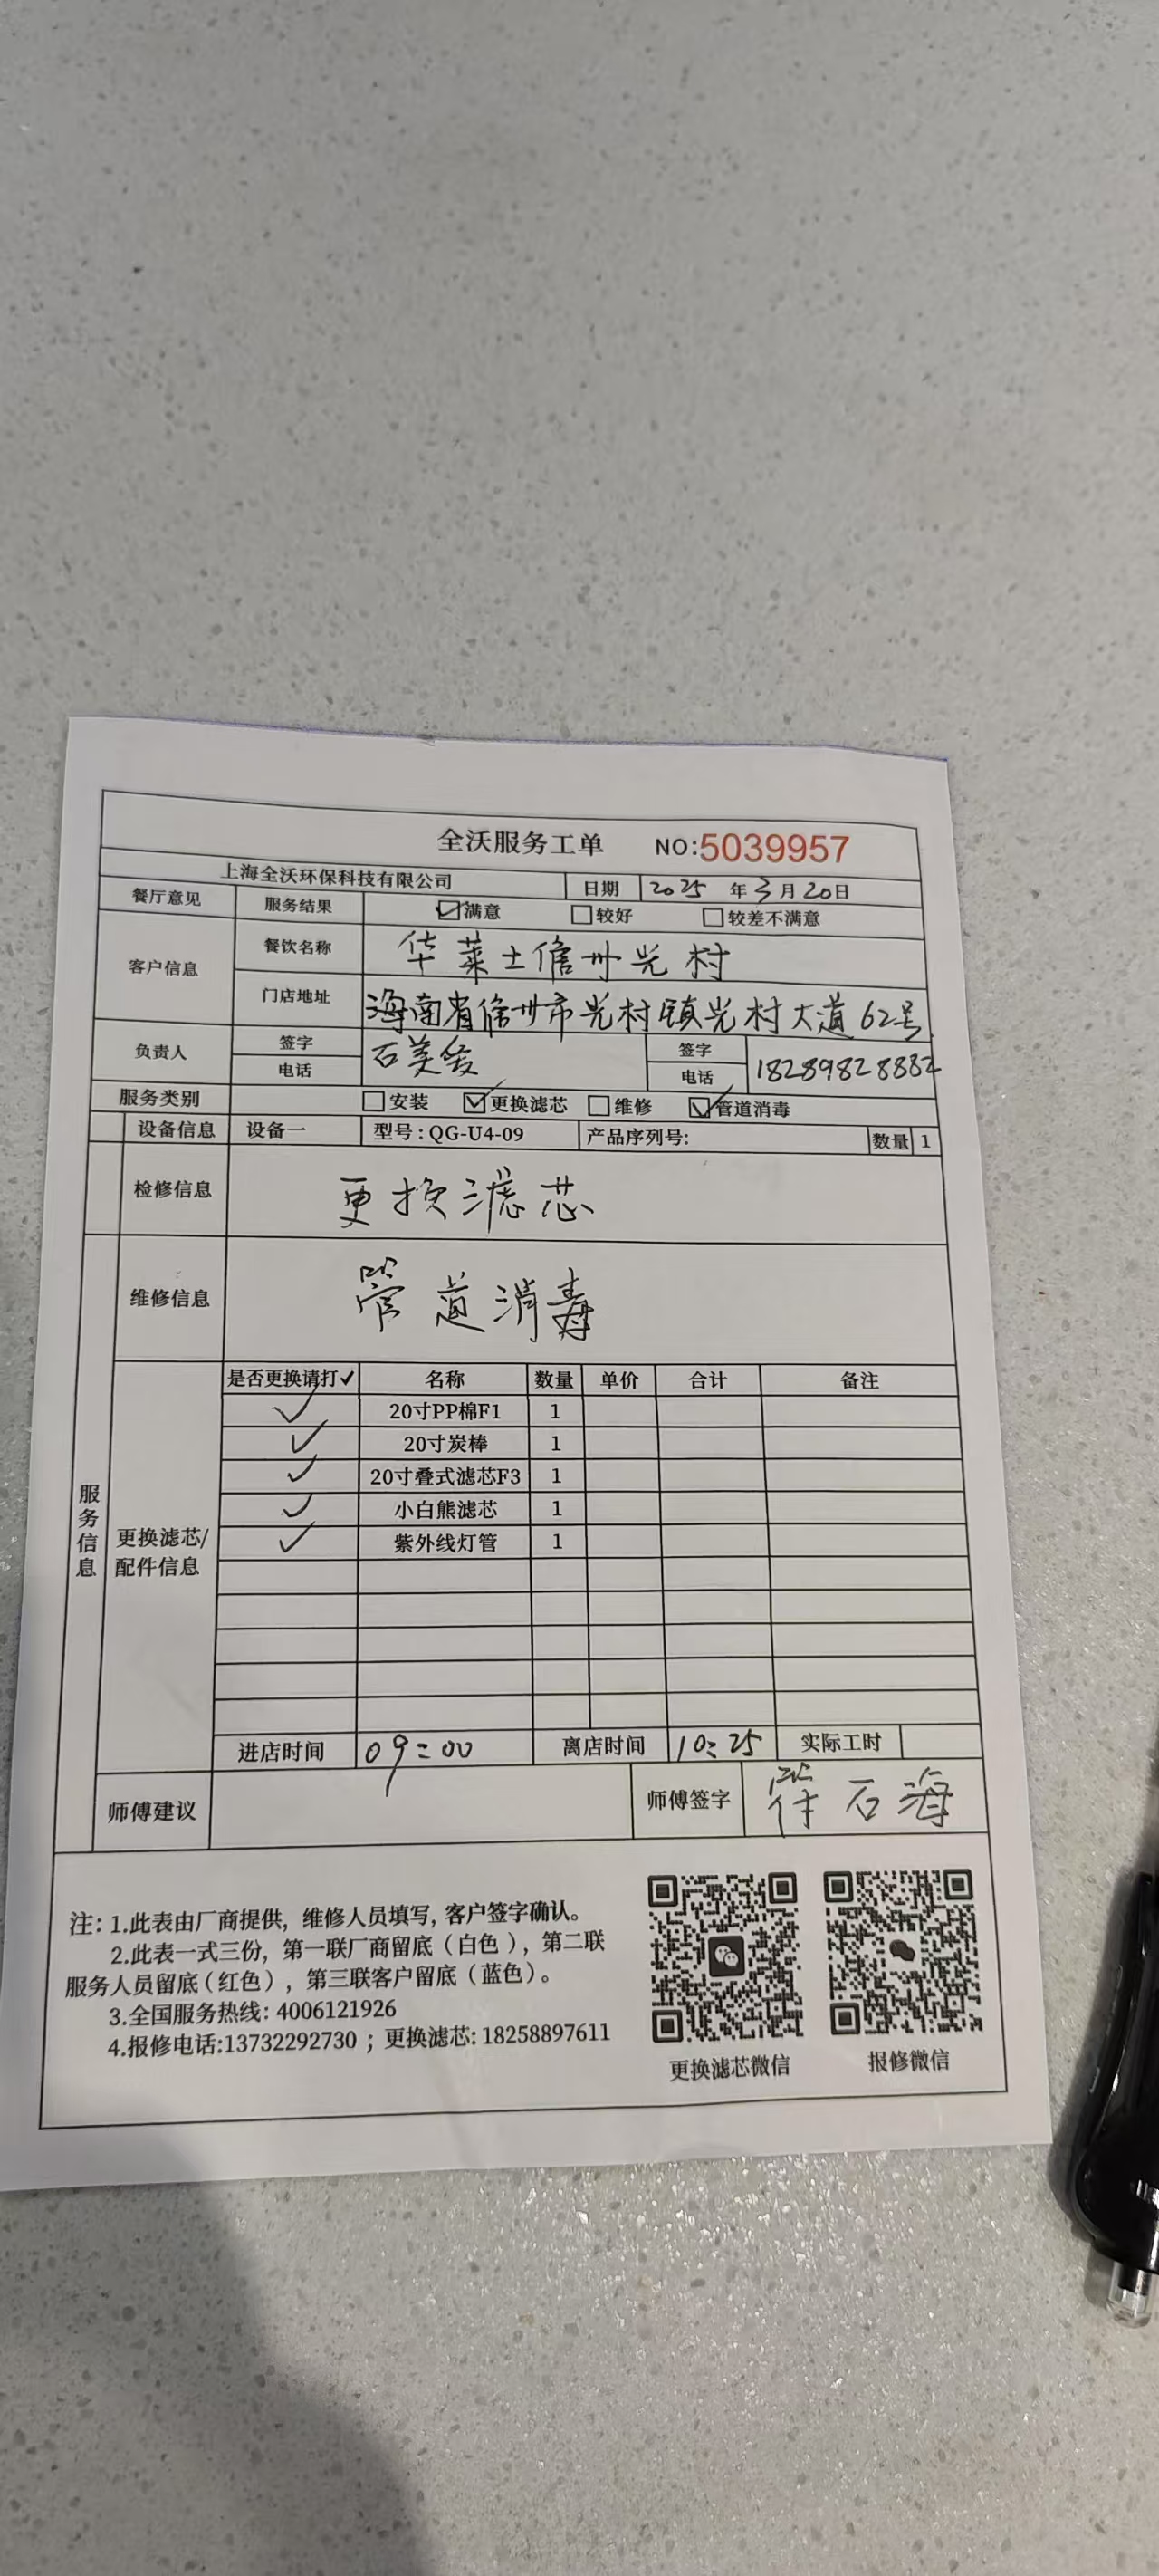 全沃服务工单 NO:5039957
上海全沃环保科技有限公司 日期 2025 年 3 月 20 日
餐厅意见 服务结果 满意 较好 较差不满意
客户信息 餐饮名称 华莱士儋州光村
门店地址 海南省儋州市光村镇光村大道62号
负责人 签字 石美 签字
电话 电话 18289828882
服务类别 安装 更换滤芯 维修 管道消毒
设备信息 设备一 型号:QG-U4-09 产品序列号: 数量 1
检修信息 更换滤芯
维修信息 管道消毒
服务信息
更换滤芯/配件信息
是否更换请打✓ 名称 数量 单价 合计 备注
✓ 20寸PP棉F1 1
✓ 20寸炭棒 1
✓ 20寸叠式滤芯F3 1
✓ 小白熊滤芯 1
✓ 紫外线灯管 1
进店时间 09:00 离店时间 10:25 实际工时
师傅建议 师傅签字 符石海
注: 1.此表由厂商提供, 维修人员填写, 客户签字确认。
2.此表一式三份, 第一联厂商留底(白色), 第二联
服务人员留底(红色), 第三联客户留底(蓝色)。
3.全国服务热线: 4006121926
4.报修电话:13732292730 ; 更换滤芯: 18258897611
更换滤芯微信 报修微信